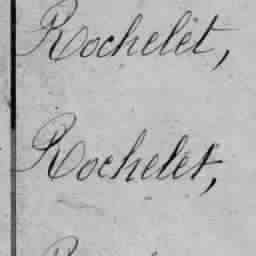 Rochelet,
Rochelet,